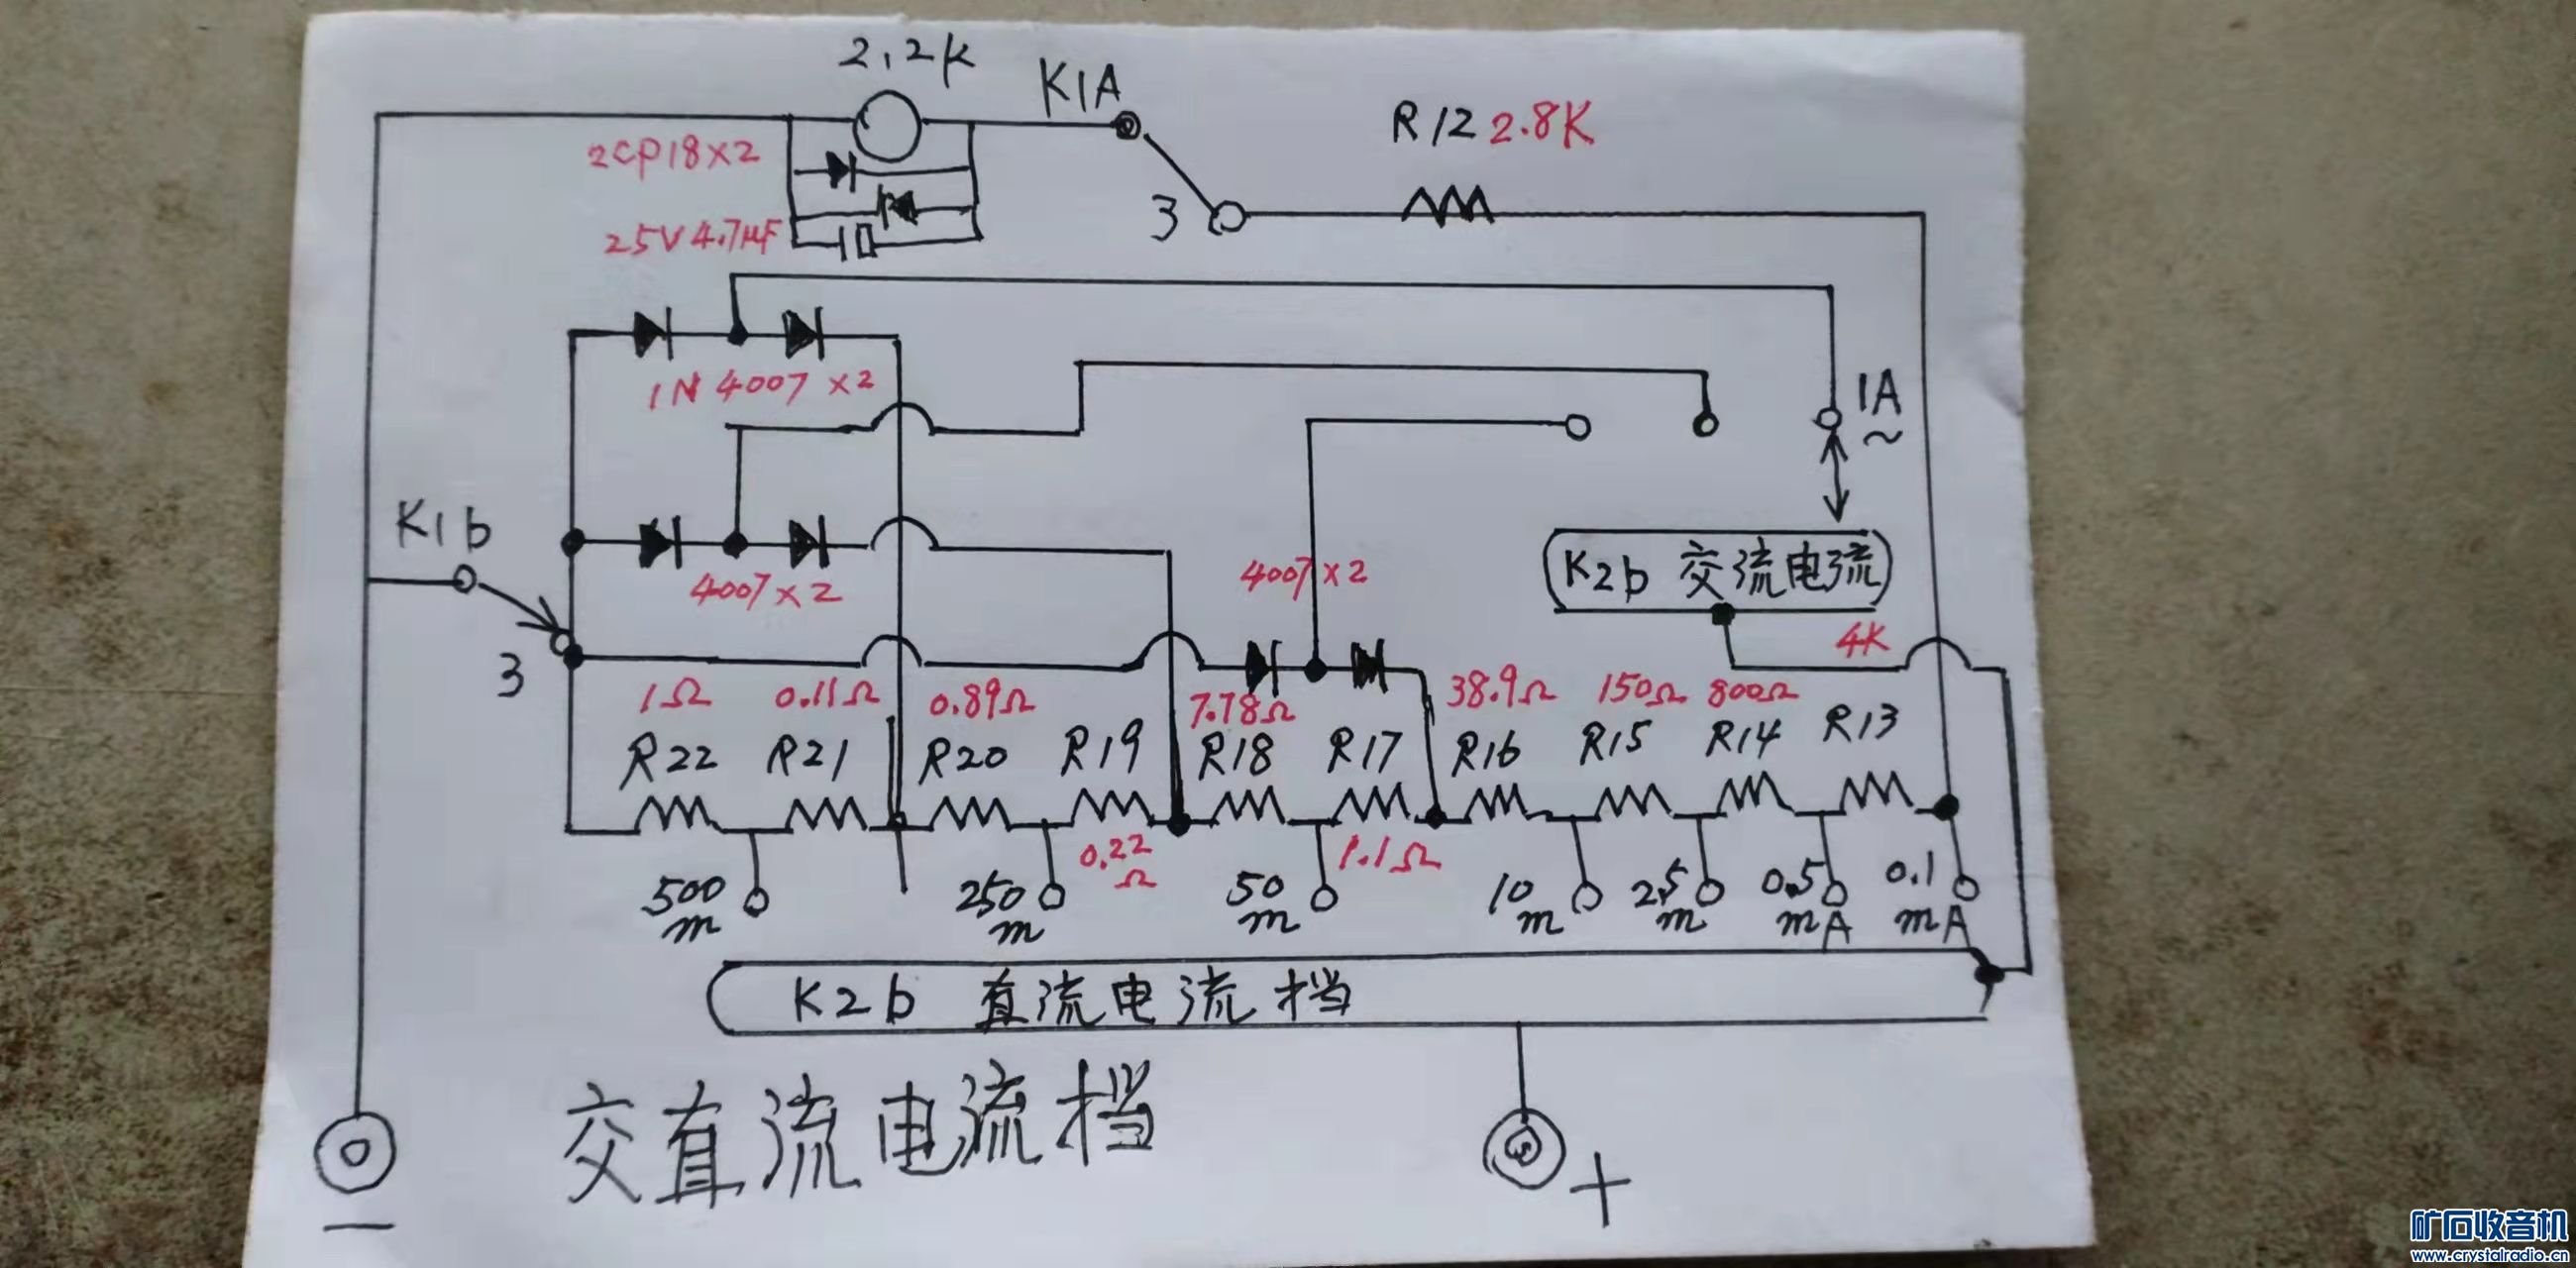 2.2K
K1A
R12 2.8K
2CP18×2
3
25V4.7μF
1N4007×2
1A
~
K1b
4007×2
4007×2
K2b 交流电流
3
4K
1Ω 0.11Ω 0.89Ω 7.78Ω 38.9Ω 150Ω 800Ω
R22 R21 R20 R19 R18 R17 R16 R15 R14 R13
0.22Ω
1.1Ω
500m 250m 50m 10m 2.5m 0.5mA 0.1mA
K2b 直流电流档
交直流电流档
+
—
矿石收音机
www.crystalradio.cn